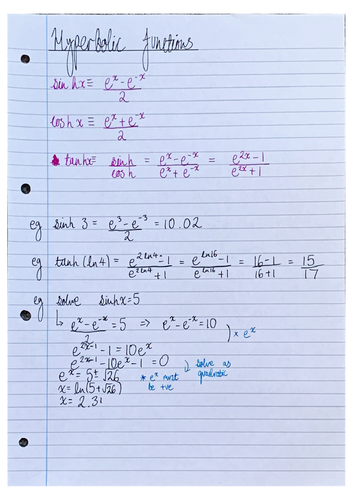 Hyperbolic functions
sinhx ≡ (e^x - e^-x)/2
coshx ≡ (e^x + e^-x)/2
tanhx ≡ sinh/cosh = (e^x - e^-x)/(e^x + e^-x) = (e^2x - 1)/(e^2x + 1)
eg sinh 3 = (e^3 - e^-3)/2 = 10.02
eg tanh(ln4) = (e^2ln4 - 1)/(e^2ln4 + 1) = (e^ln16 - 1)/(e^ln16 + 1) = (16-1)/(16+1) = 15/17
eg solve sinhx=5
↳ (e^x - e^-x)/2 = 5 ⇒ e^x - e^-x = 10 ) × e^x
e^2x-1 - 1 = 10e^x
e^2x-1 - 10e^x - 1 = 0 solve as quadratic
e^x = 5 ± √26 * e^x must be +ve
x = ln(5+√26)
x = 2.31